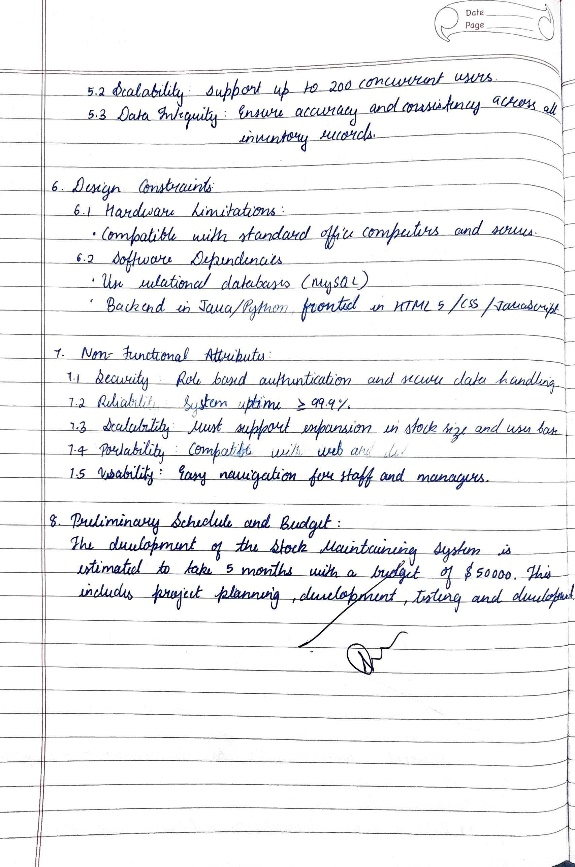 Date
Page
5.2 Scalability: Support up to 200 concurrent users.
5.3 Data Integrity: Ensure accuracy and consistency across all
inventory records.
6. Design Constraints:
6.1 Hardware Limitations:
• Compatible with standard office computers and servers.
6.2 Software Dependencies
• Use relational databases (MySQL)
• Backend in Java/Python, frontend in HTML 5 /CSS /JavaScript
7. Non-Functional Attributes:
7.1 Security: Role based authentication and secure data handling
7.2 Reliability System uptime ≥ 99.9%.
7.3 Scalability: Must support expansion in stock size and user base
7.4 Portability: Compatible with web and
7.5 Usability: Easy navigation for staff and managers.
8. Preliminary Schedule and Budget:
The development of the Stock Maintaining System is
estimated to take 5 months with a budget of $50000. This
includes project planning, development, testing and development